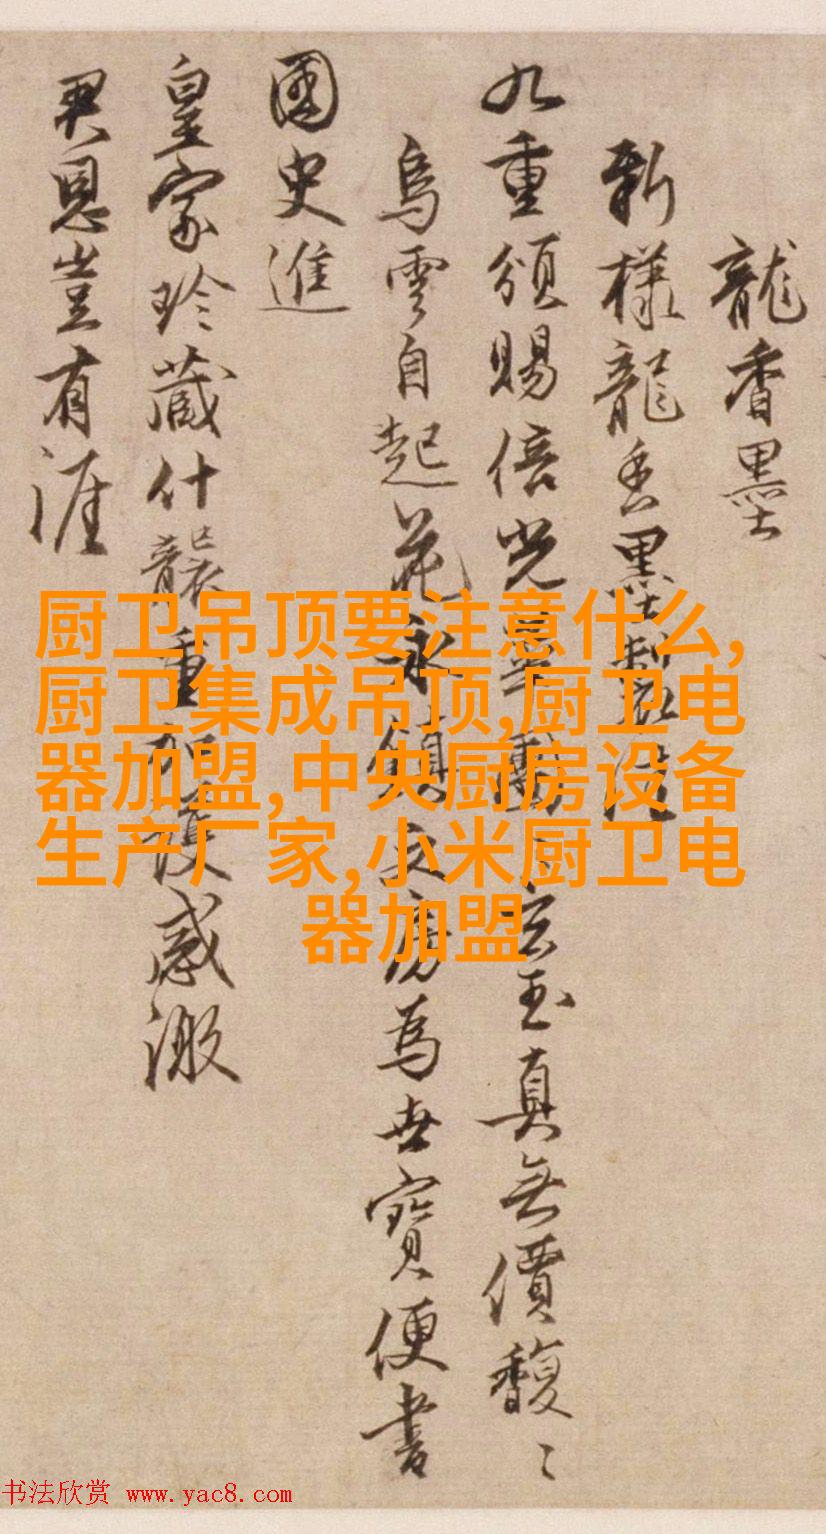 龍香墨
新様龍香墨製從
九重頒賜倍光華
玄玉真無價馥〻
烏雲自起花永鎮文房為世寶便書
國史進
皇家珍藏什襲重加護感激
君恩豈有涯
厨卫吊顶要注意什么,
厨卫集成吊顶,厨卫电
器加盟,中央厨房设备
生产厂家,小米厨卫电
器加盟
书法欣赏 www.yac8.com